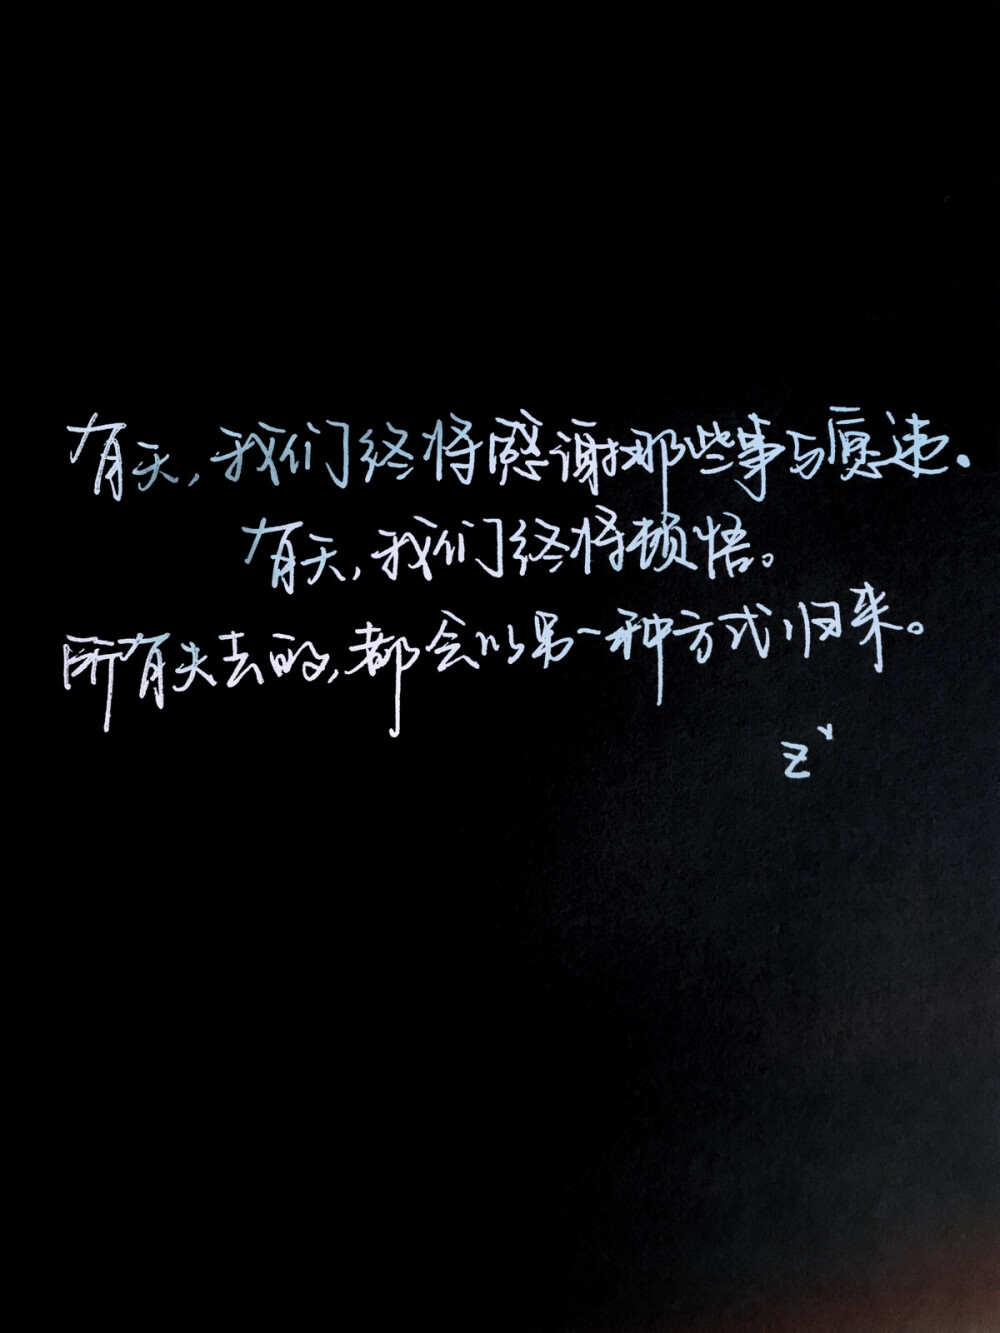 有天，我们终将感谢那些事与愿违。
有天，我们终将顿悟。
所有失去的，都会以另一种方式归来。